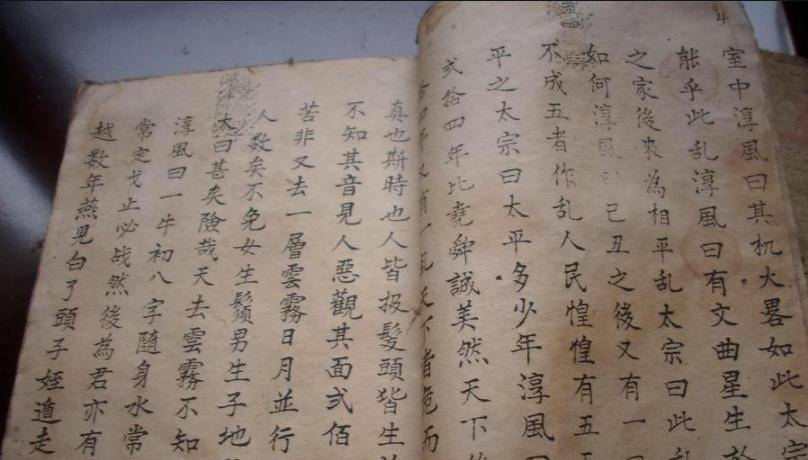 室中淳風曰其机大畧如此太宗
能乎此乱淳風曰有文曲星生於
之家後来為相平乱太宗曰此乱
如何淳風曰己丑之後又有一
不成五者作乱人民惶惶有五
平之太宗曰太平多少年淳風曰
弍拾四年比堯舜誠美然天下
又有一乱天下者危而
真也斯時也人皆极髮頭皆生
不知其音見人惡觀其面弍佰
苦非又去一層雲霧日月並行
人数矣不免女生鬚男生子地
太曰甚矣險哉天去雲霧不知
淳風曰一牛初八字随身水常
常定戈止必战然後為君亦有
越数年燕児白了頭子姪逃走